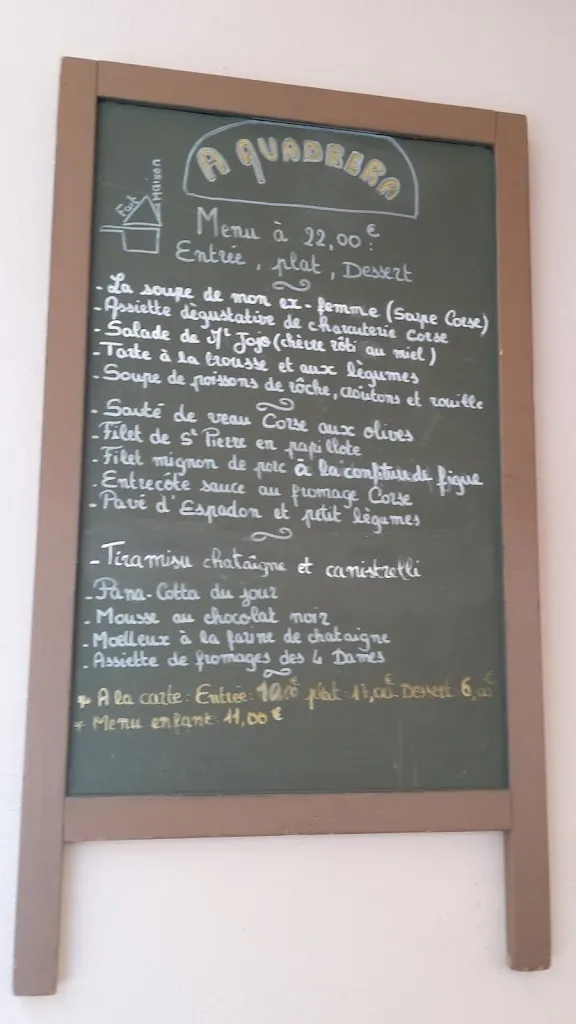 A QUADRERA
Fait Maison
Menu à 22,00€:
Entrée, plat, Dessert
- La soupe de mon ex-femme (Soupe Corse)
- Assiette dégustative de charcuterie Corse
- Salade de Mr Jojo (chèvre rôti au miel)
- Tarte à la brousse et aux légumes
- Soupe de poissons de rôche, croûtons et rouille
- Sauté de veau Corse aux olives
- Filet de St Pierre en papillote
- Filet mignon de porc à la confiture de figue
- Entrecôte sauce au fromage Corse
- Pavé d'Espadon et petit légumes
- Tiramisu chataîgne et canistrelli
- Pana-Cotta du jour
- Mousse au chocolat noir
- Moelleux à la farine de chataigne
- Assiette de fromages des 4 Dames
* A la carte: Entrée: 10,00€ plat: 17,00€ Dessert: 6,00€
* Menu enfant: 11,00€